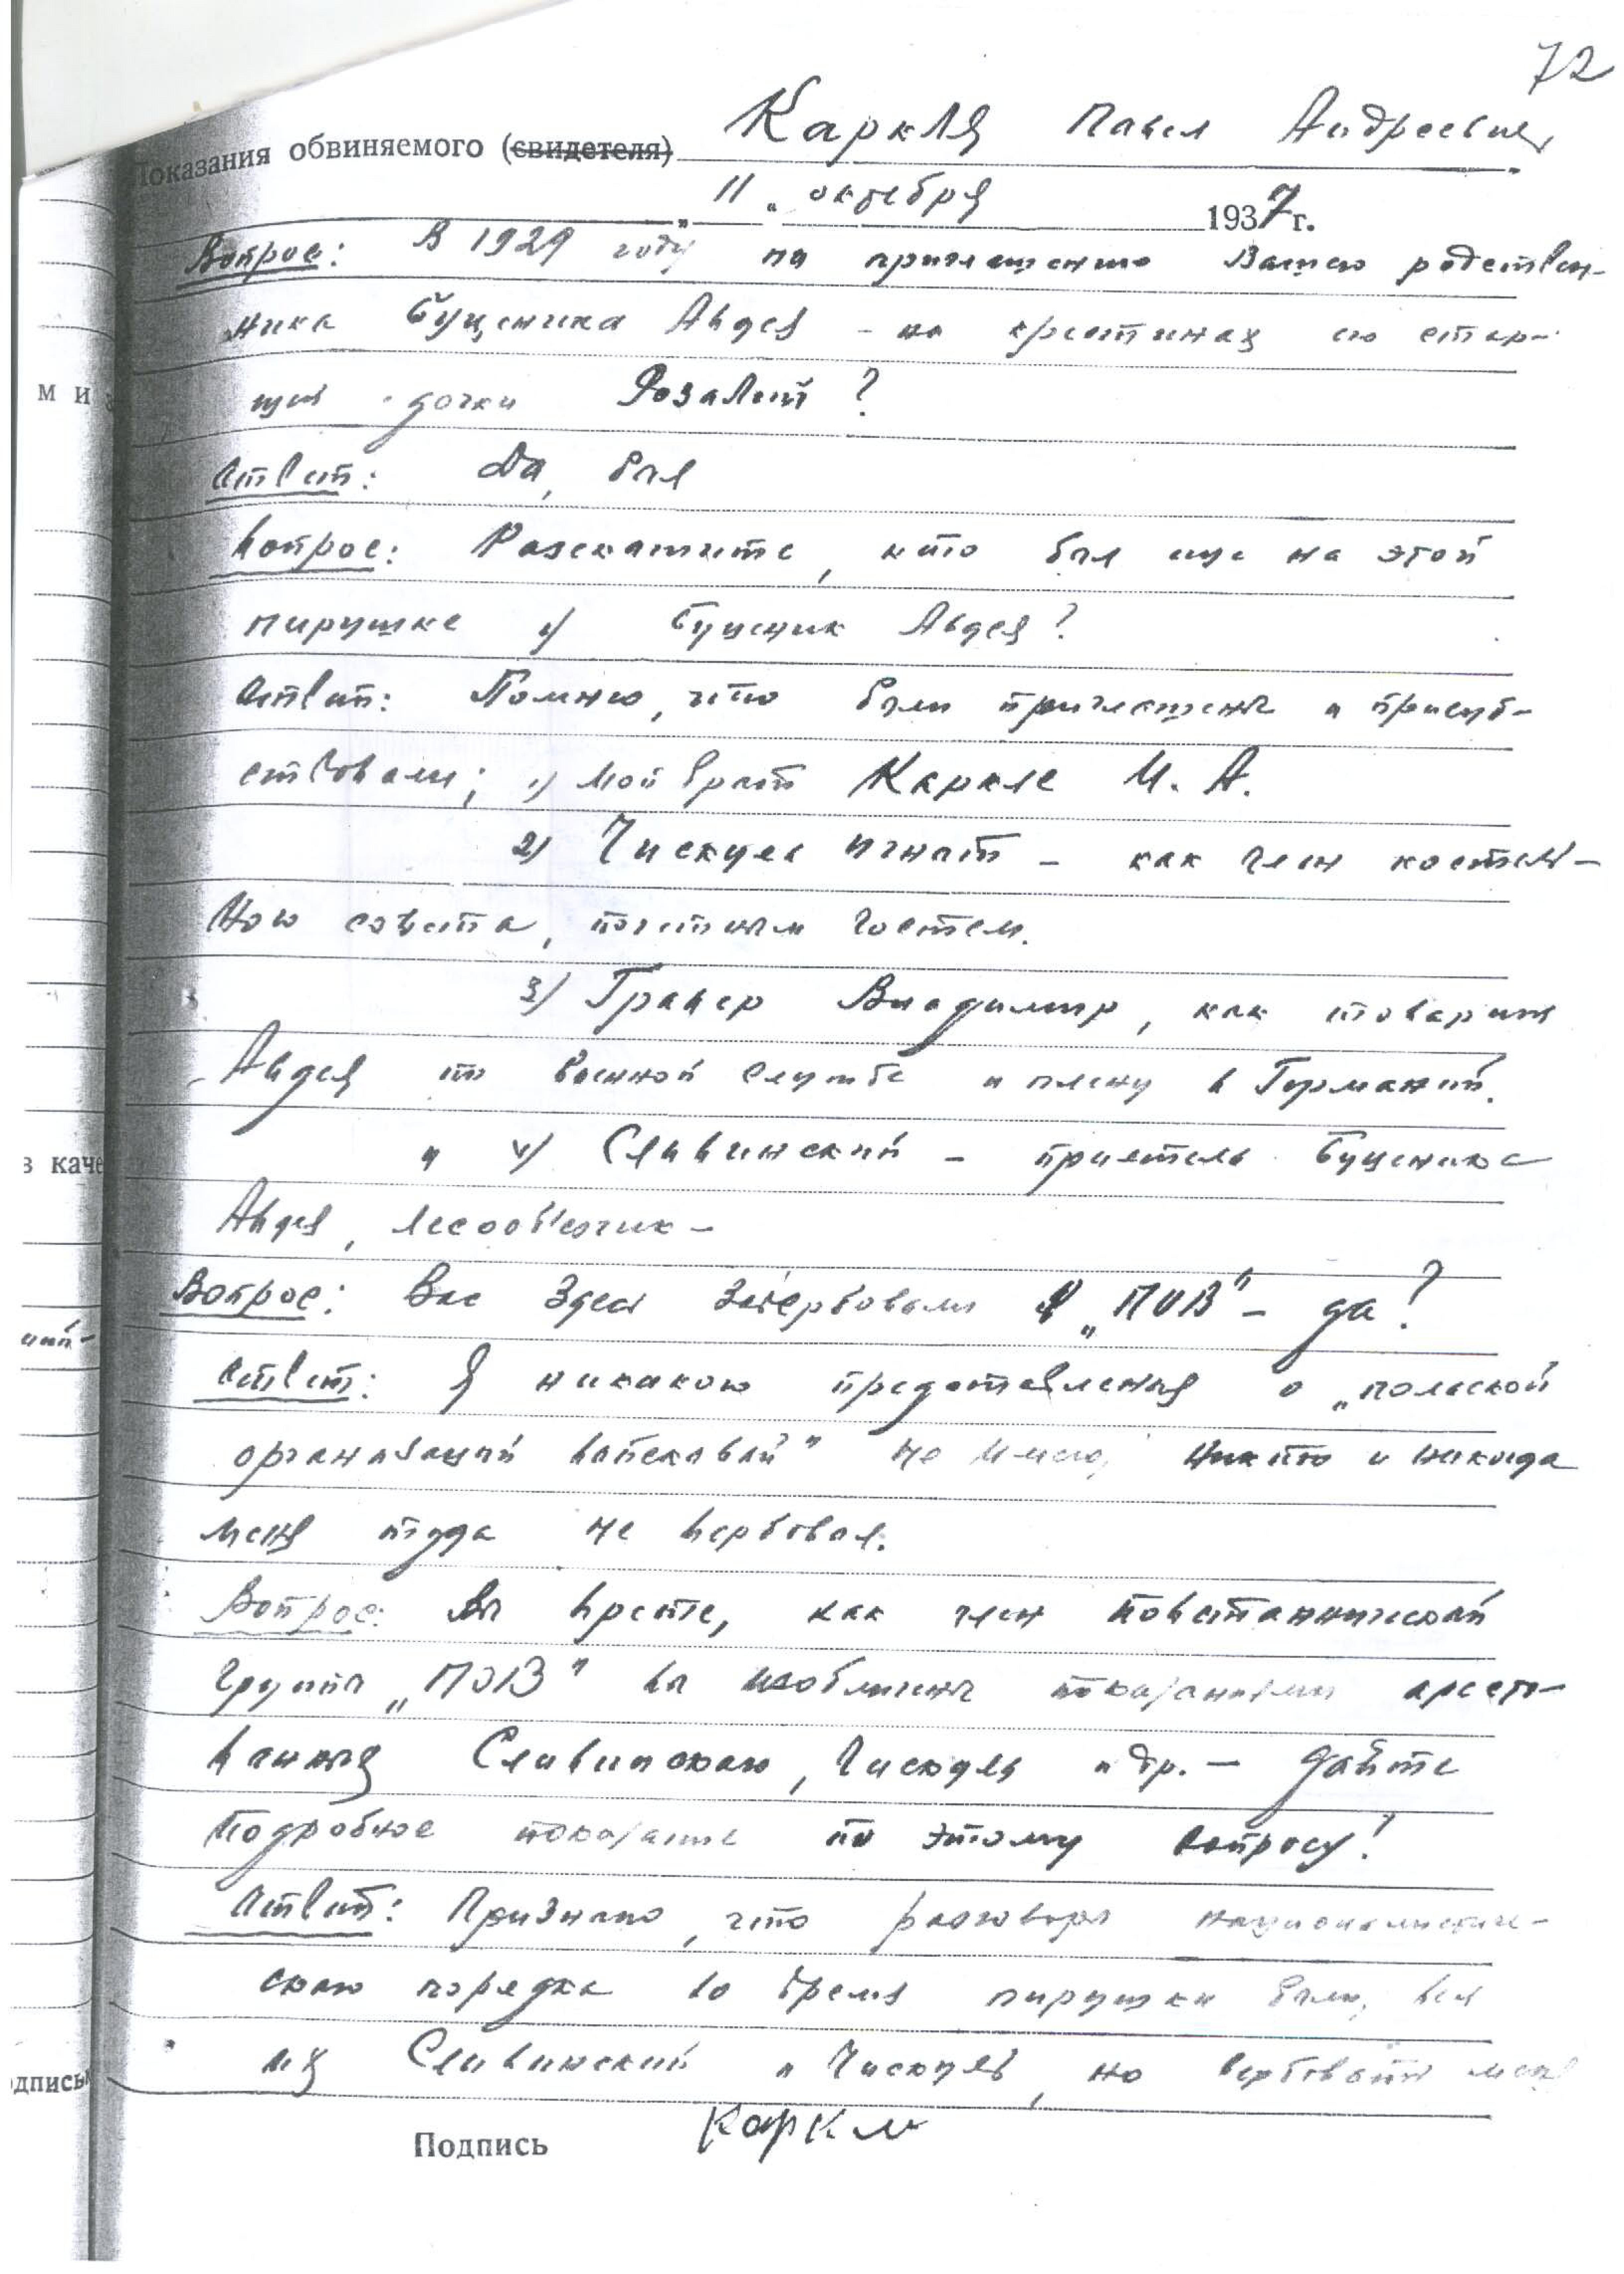 72
Показания обвиняемого (свидетеля) Каркля Павел Андреевич
„ 11 " октября 1937 г.
Вопрос: В 1929 году по приглашению Вашего родствен-
ника Буценика Авдея - на крестинах его стар-
шей дочки Розалии?
м и
Ответ: Да, был
Вопрос: Разскажите, кто был еще на этой
пирушке у Буценик Авдея?
Ответ: Помню, что были приглашены и присут-
ствовали; 1) Мой брат Каркле И. А.
2) Чискуле Игнат - как член костель-
ного совета, почетным гостем.
3) Гравер Владимир, как товарищ
Авдея по военной службе и плену в Германий.
и 4) Сливинский - приятель Буценика
в каче
Авдея, лесооб'езчик -
Вопрос: Вас здесь завербовали в „ПОВ" - да?
Ответ: Я никакого представления о „польской
организаций войсковой" не имею, никто и никогда
меня туда не вербовал.
Вопрос: Вы врете, как член повстанческой
группы „ПОВ" вы изобличены показаниями аресто-
ванных Сливинского, Чискуля и др. - дайте
подробное показание по этому вопросу!
Ответ: Признаю, что разговоры националистиче-
ского порядка во время пирушки были, вел
их Сливинский и Чискуль, но вербовать меня
одпись
Подпись Каркл